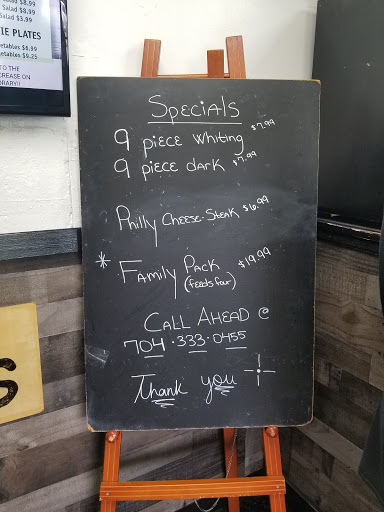 Salad $8.99
Salad $3.99
IE PLATES
etables $6.99
etables $9.25
TO THE
CREASE ON
RARY!!
Specials
9 piece whiting $7.99
9 piece dark $7.99
Philly Cheese-Steak $6.99
* Family Pack $19.99
(feeds four)
Call Ahead @
704.333.0455
Thank you
S